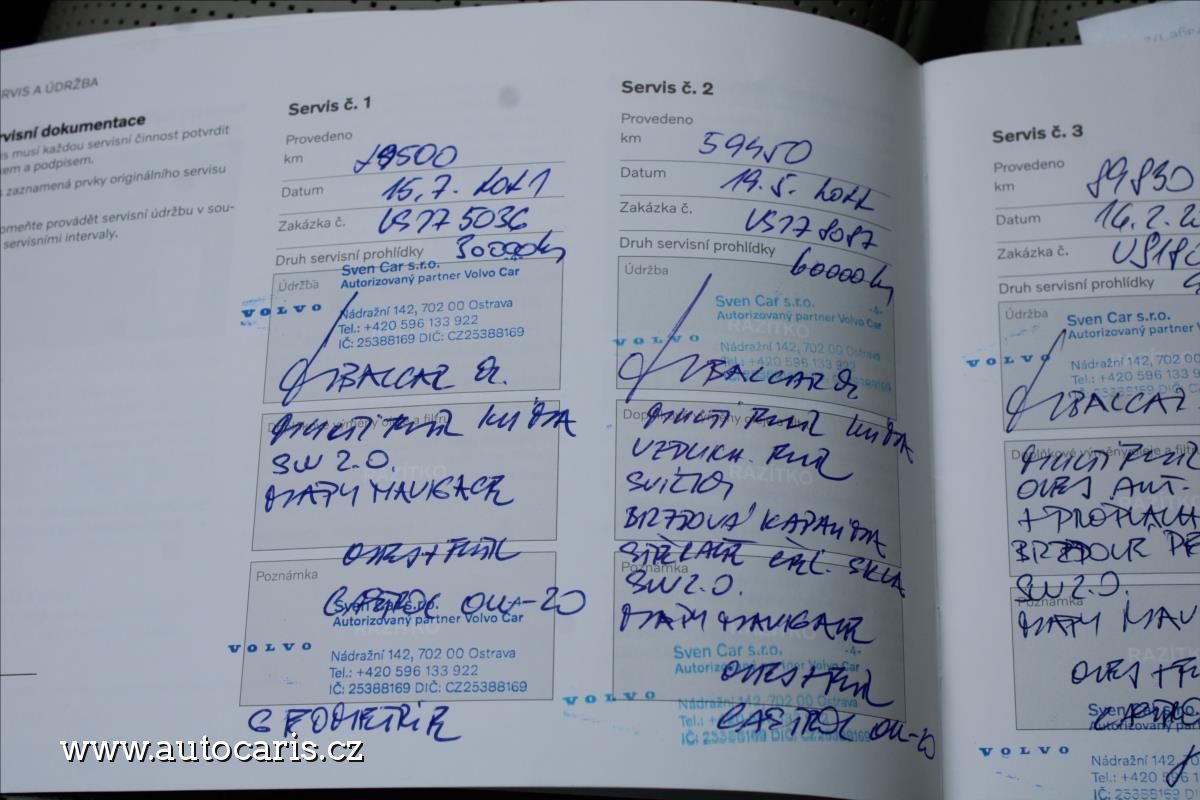 RVIS A ÚDRŽBA
rvisní dokumentace
is musí každou servisní činnost potvrdit
kem a podpisem.
s zaznamená prvky originálního servisu
omeňte provádět servisní údržbu v sou-
servisními intervaly.
Servis č. 1
Provedeno
km 29500
Datum 15.7. 2021
Zakázka č. US77 5036
Druh servisní prohlídky 30000km
Údržba
Sven Car s.r.o.
Autorizovaný partner Volvo Car
VOLVO
Nádražní 142, 702 00 Ostrava
Tel.: +420 596 133 922
IČ: 25388169 DIČ: CZ25388169
BALCAR
MULTI FILTR
SW 2.0.
RAZÍTKO
MAPY NAVIGACE
OLEJ + FILTR
Poznámka
CASTROL 0W-20
Sven Car s.r.o.
Autorizovaný partner Volvo Car
VOLVO
Nádražní 142, 702 00 Ostrava
Tel.: +420 596 133 922
IČ: 25388169 DIČ: CZ25388169
GEOMETRIE
Servis č. 2
Provedeno
km 59450
Datum 19.5. 2022
Zakázka č. US77 8087
Druh servisní prohlídky 60000km
Údržba
Sven Car s.r.o. -4-
Autorizovaný partner Volvo Car
RAZÍTKO
VOLVO
Nádražní 142, 702 00 Ostrava
Tel.: +420 596 133 922
BALCAR
MULTI FILTR
VZDUCH. FILTR
RAZÍTKO
BRZDOVÁ KAPALINA
STĚRAČE ČEL. SKLA
Poznámka
SW 2.0.
MAPY NAVIGACE
Sven Car s.r.o. -4-
Autorizovaný partner Volvo Car
OLEJ + FILTR
VOLVO
Nádražní 142, 702 00 Ostrava
CASTROL 0W-20
IČ: 25388169 DIČ: CZ25388169
Servis č. 3
Provedeno
km 89830
Datum 16.2.2
Zakázka č.
Druh servisní prohlídky
Údržba
Sven Car s.r.o.
Autorizovaný partner Vol
VOLVO
Nádražní 142, 702 00
Tel.: +420 596 13
BALCAR
Doplňkové výměny oleje a filtru
MULTI FILTR
OLEJ AUT.
+ PROPLACH
SW 2.0.
Poznámka
MAPY NAV
OLEJ + FIL
Sven Car s.r.o.
Autorizovaný part
VOLVO
Nádražní 142, 70
Tel.: +420 596
IČ: 25388169
www.autocaris.cz